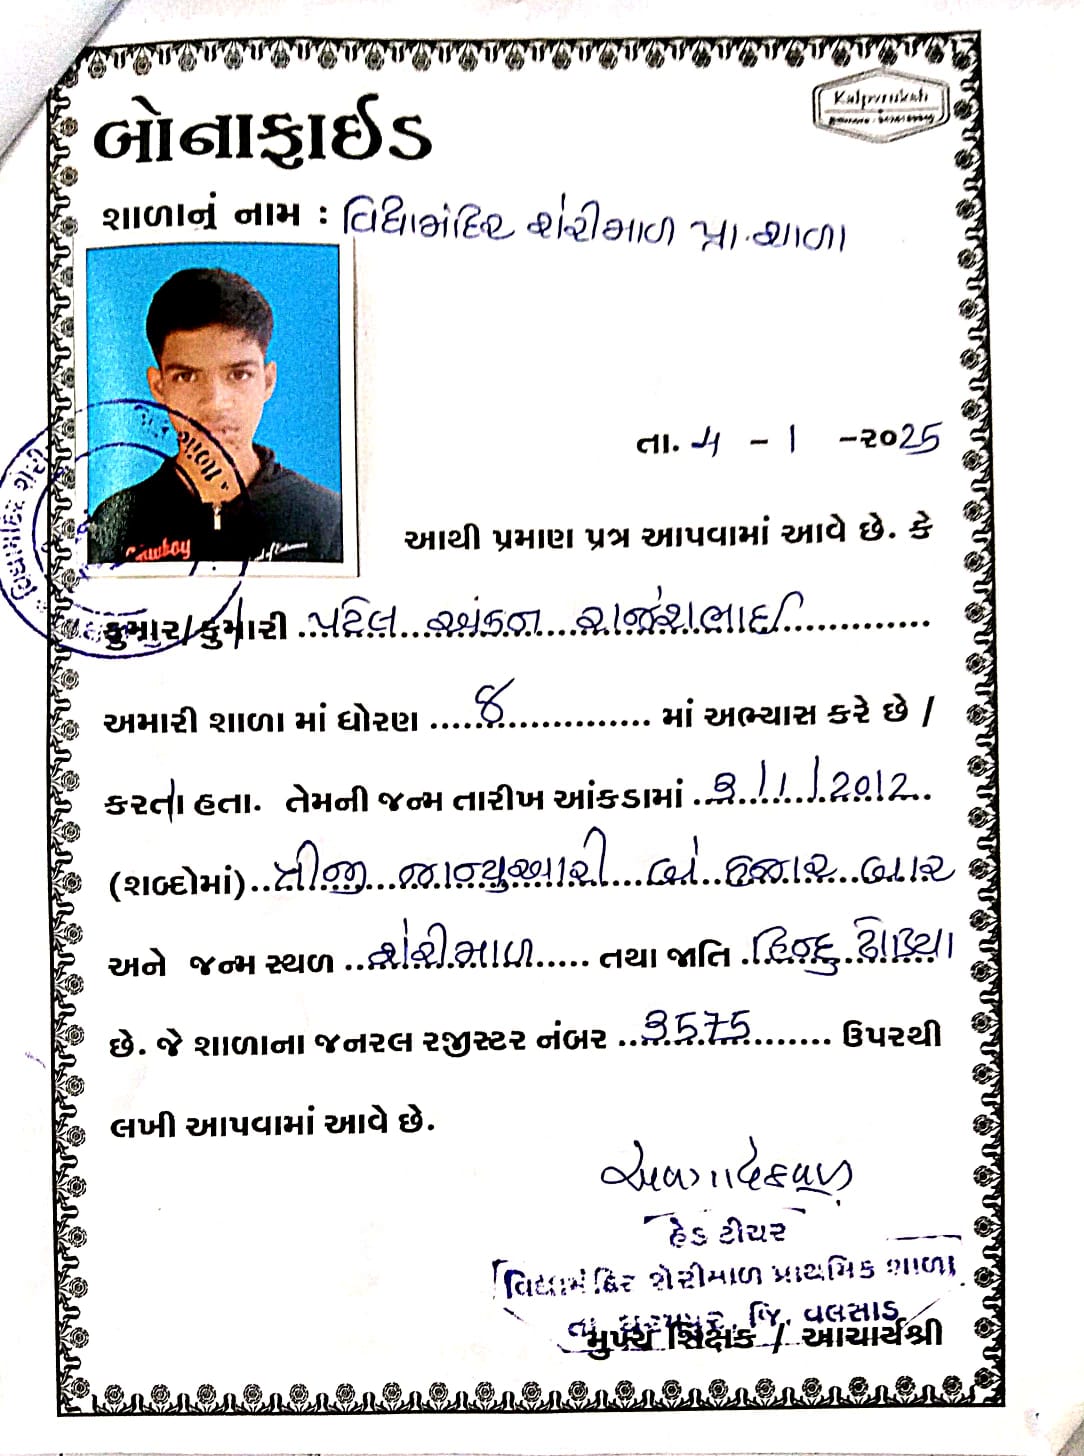 Kalpvruksh
બોનાફાઈડ
શાળાનું નામ : વિદ્યામંદિર શેરીમાળ પ્રા.શાળા
તા. 4 - 1 -૨૦25
આથી પ્રમાણ પત્ર આપવામાં આવે છે. કે
કુમાર/કુમારી ...પટેલ...અંકન...રાજેશભાઈ.............
અમારી શાળા માં ધોરણ .....૪............... માં અભ્યાસ કરે છે /
કરતા હતા. તેમની જન્મ તારીખ આંકડામાં ..૩./.1./.2012..
(શબ્દોમાં)..ત્રીજી...જાન્યુઆરી...બે..હજાર...બાર
અને જન્મ સ્થળ ..શેરીમાળ..... તથા જાતિ .હિન્દુ.ઢોડિયા
છે. જે શાળાના જનરલ રજીસ્ટર નંબર ..૩575........ ઉપરથી
લખી આપવામાં આવે છે.
હેડ ટીચર
વિદ્યામંદિર શેરીમાળ પ્રાથમિક શાળા
તા. ધરમપુર, જિ. વલસાડ
મુખ્ય શિક્ષક / આચાર્યશ્રી